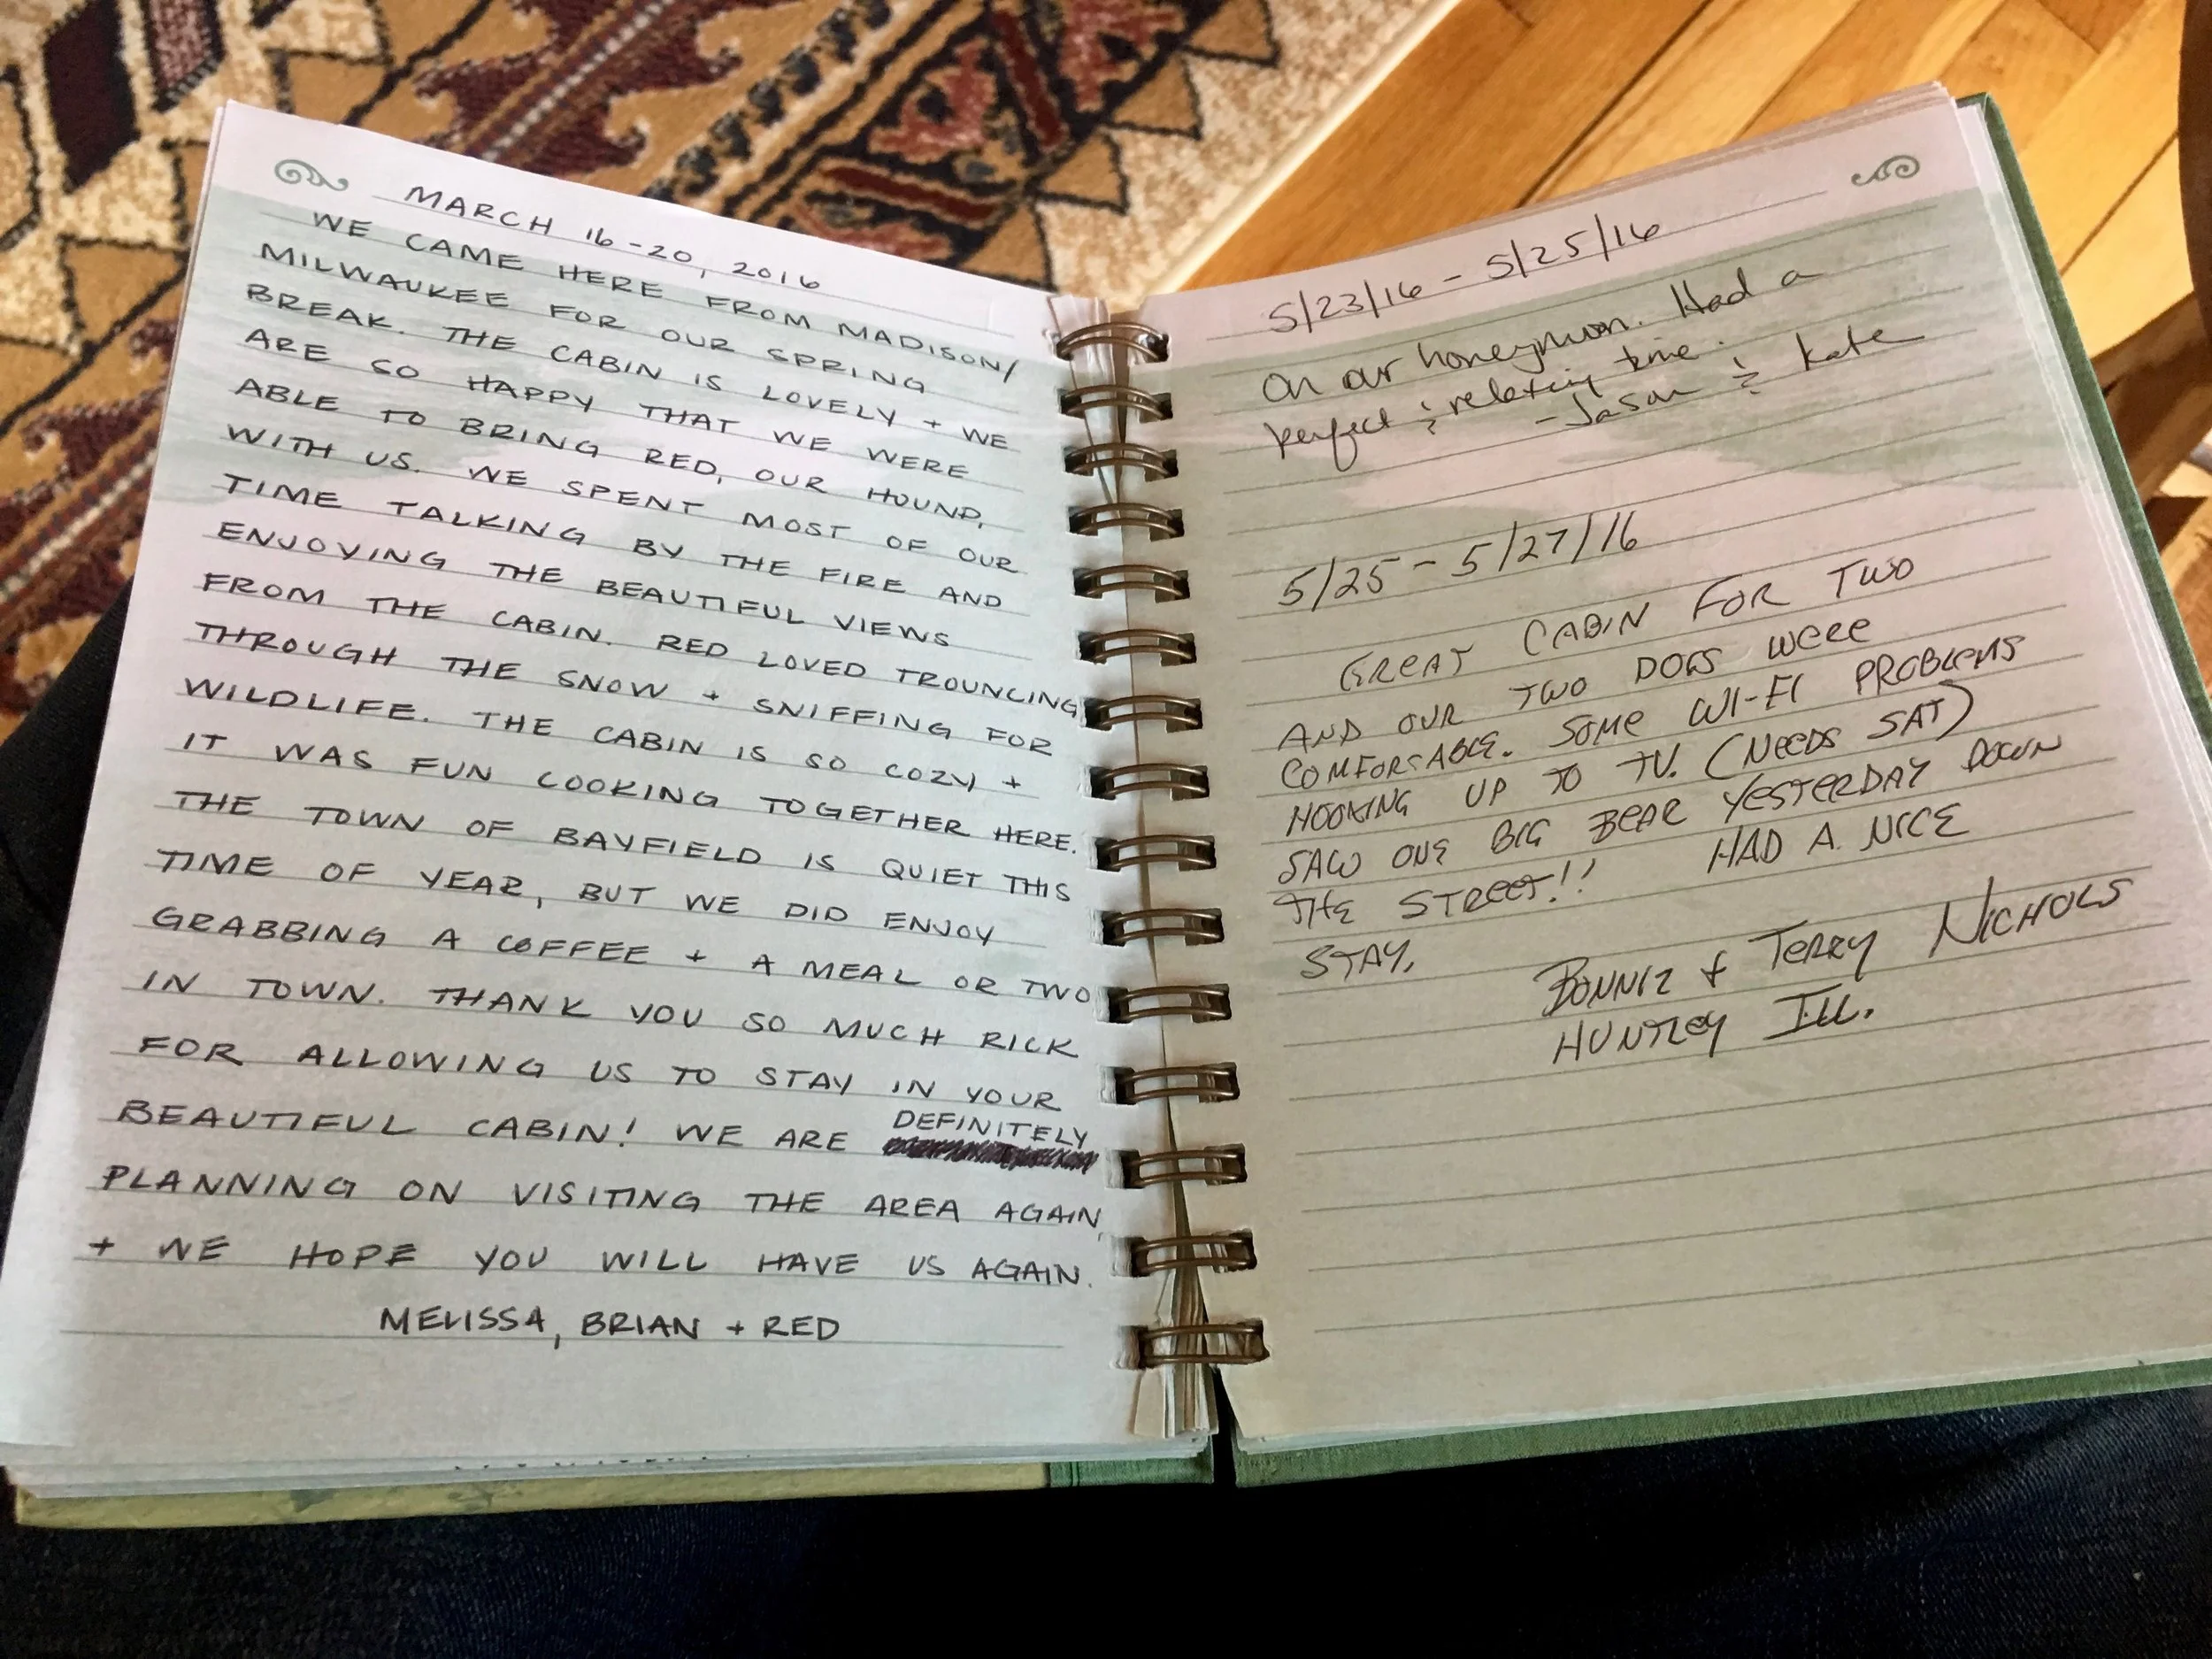 MARCH 16-20, 2016
WE CAME HERE FROM MADISON/
MILWAUKEE FOR OUR SPRING
BREAK. THE CABIN IS LOVELY + WE
ARE SO HAPPY THAT WE WERE
ABLE TO BRING RED, OUR HOUND,
WITH US. WE SPENT MOST OF OUR
TIME TALKING BY THE FIRE AND
ENJOYING THE BEAUTIFUL VIEWS
FROM THE CABIN. RED LOVED TROUNCING
THROUGH THE SNOW + SNIFFING FOR
WILDLIFE. THE CABIN IS SO COZY +
IT WAS FUN COOKING TOGETHER HERE.
THE TOWN OF BAYFIELD IS QUIET THIS
TIME OF YEAR, BUT WE DID ENJOY
GRABBING A COFFEE + A MEAL OR TWO
IN TOWN. THANK YOU SO MUCH RICK
FOR ALLOWING US TO STAY IN YOUR
BEAUTIFUL CABIN! WE ARE DEFINITELY
PLANNING ON VISITING THE AREA AGAIN,
+ WE HOPE YOU WILL HAVE US AGAIN.
MELISSA, BRIAN + RED
5/23/16 - 5/25/16
On our honeymoon. Had a
perfect & relaxing time.
-Jason & Kate
5/25 - 5/27/16
GREAT CABIN FOR TWO
AND OUR TWO DOGS WERE
COMFORTABLE. SOME WI-FI PROBLEMS
HOOKING UP TO TV. (NEEDS SAT)
SAW ONE BIG BEAR YESTERDAY DOWN
THE STREET!! HAD A NICE
STAY.
BONNIE + TERRY NICHOLS
HUNTLEY ILL.